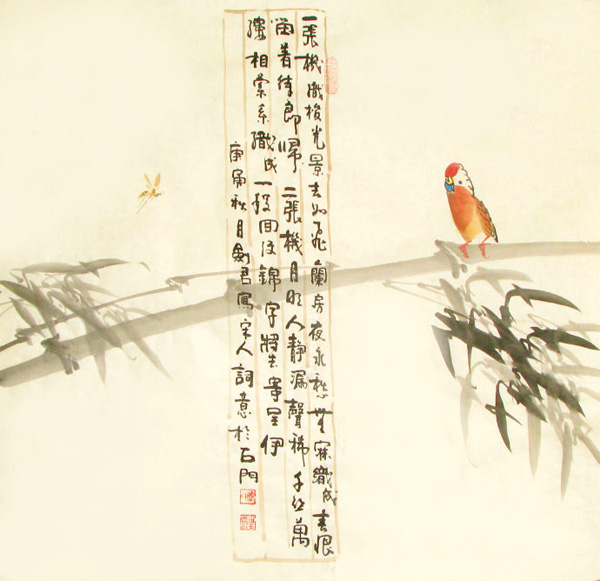 一張機織梭光景去如飛蘭房夜永愁無寐織成春恨
留着待郎歸二張機月明人靜漏聲稀千丝萬
縷相縈系織成一段回紋錦字將去寄呈伊
庚寅秋月劍君寫宋人詞意於石門